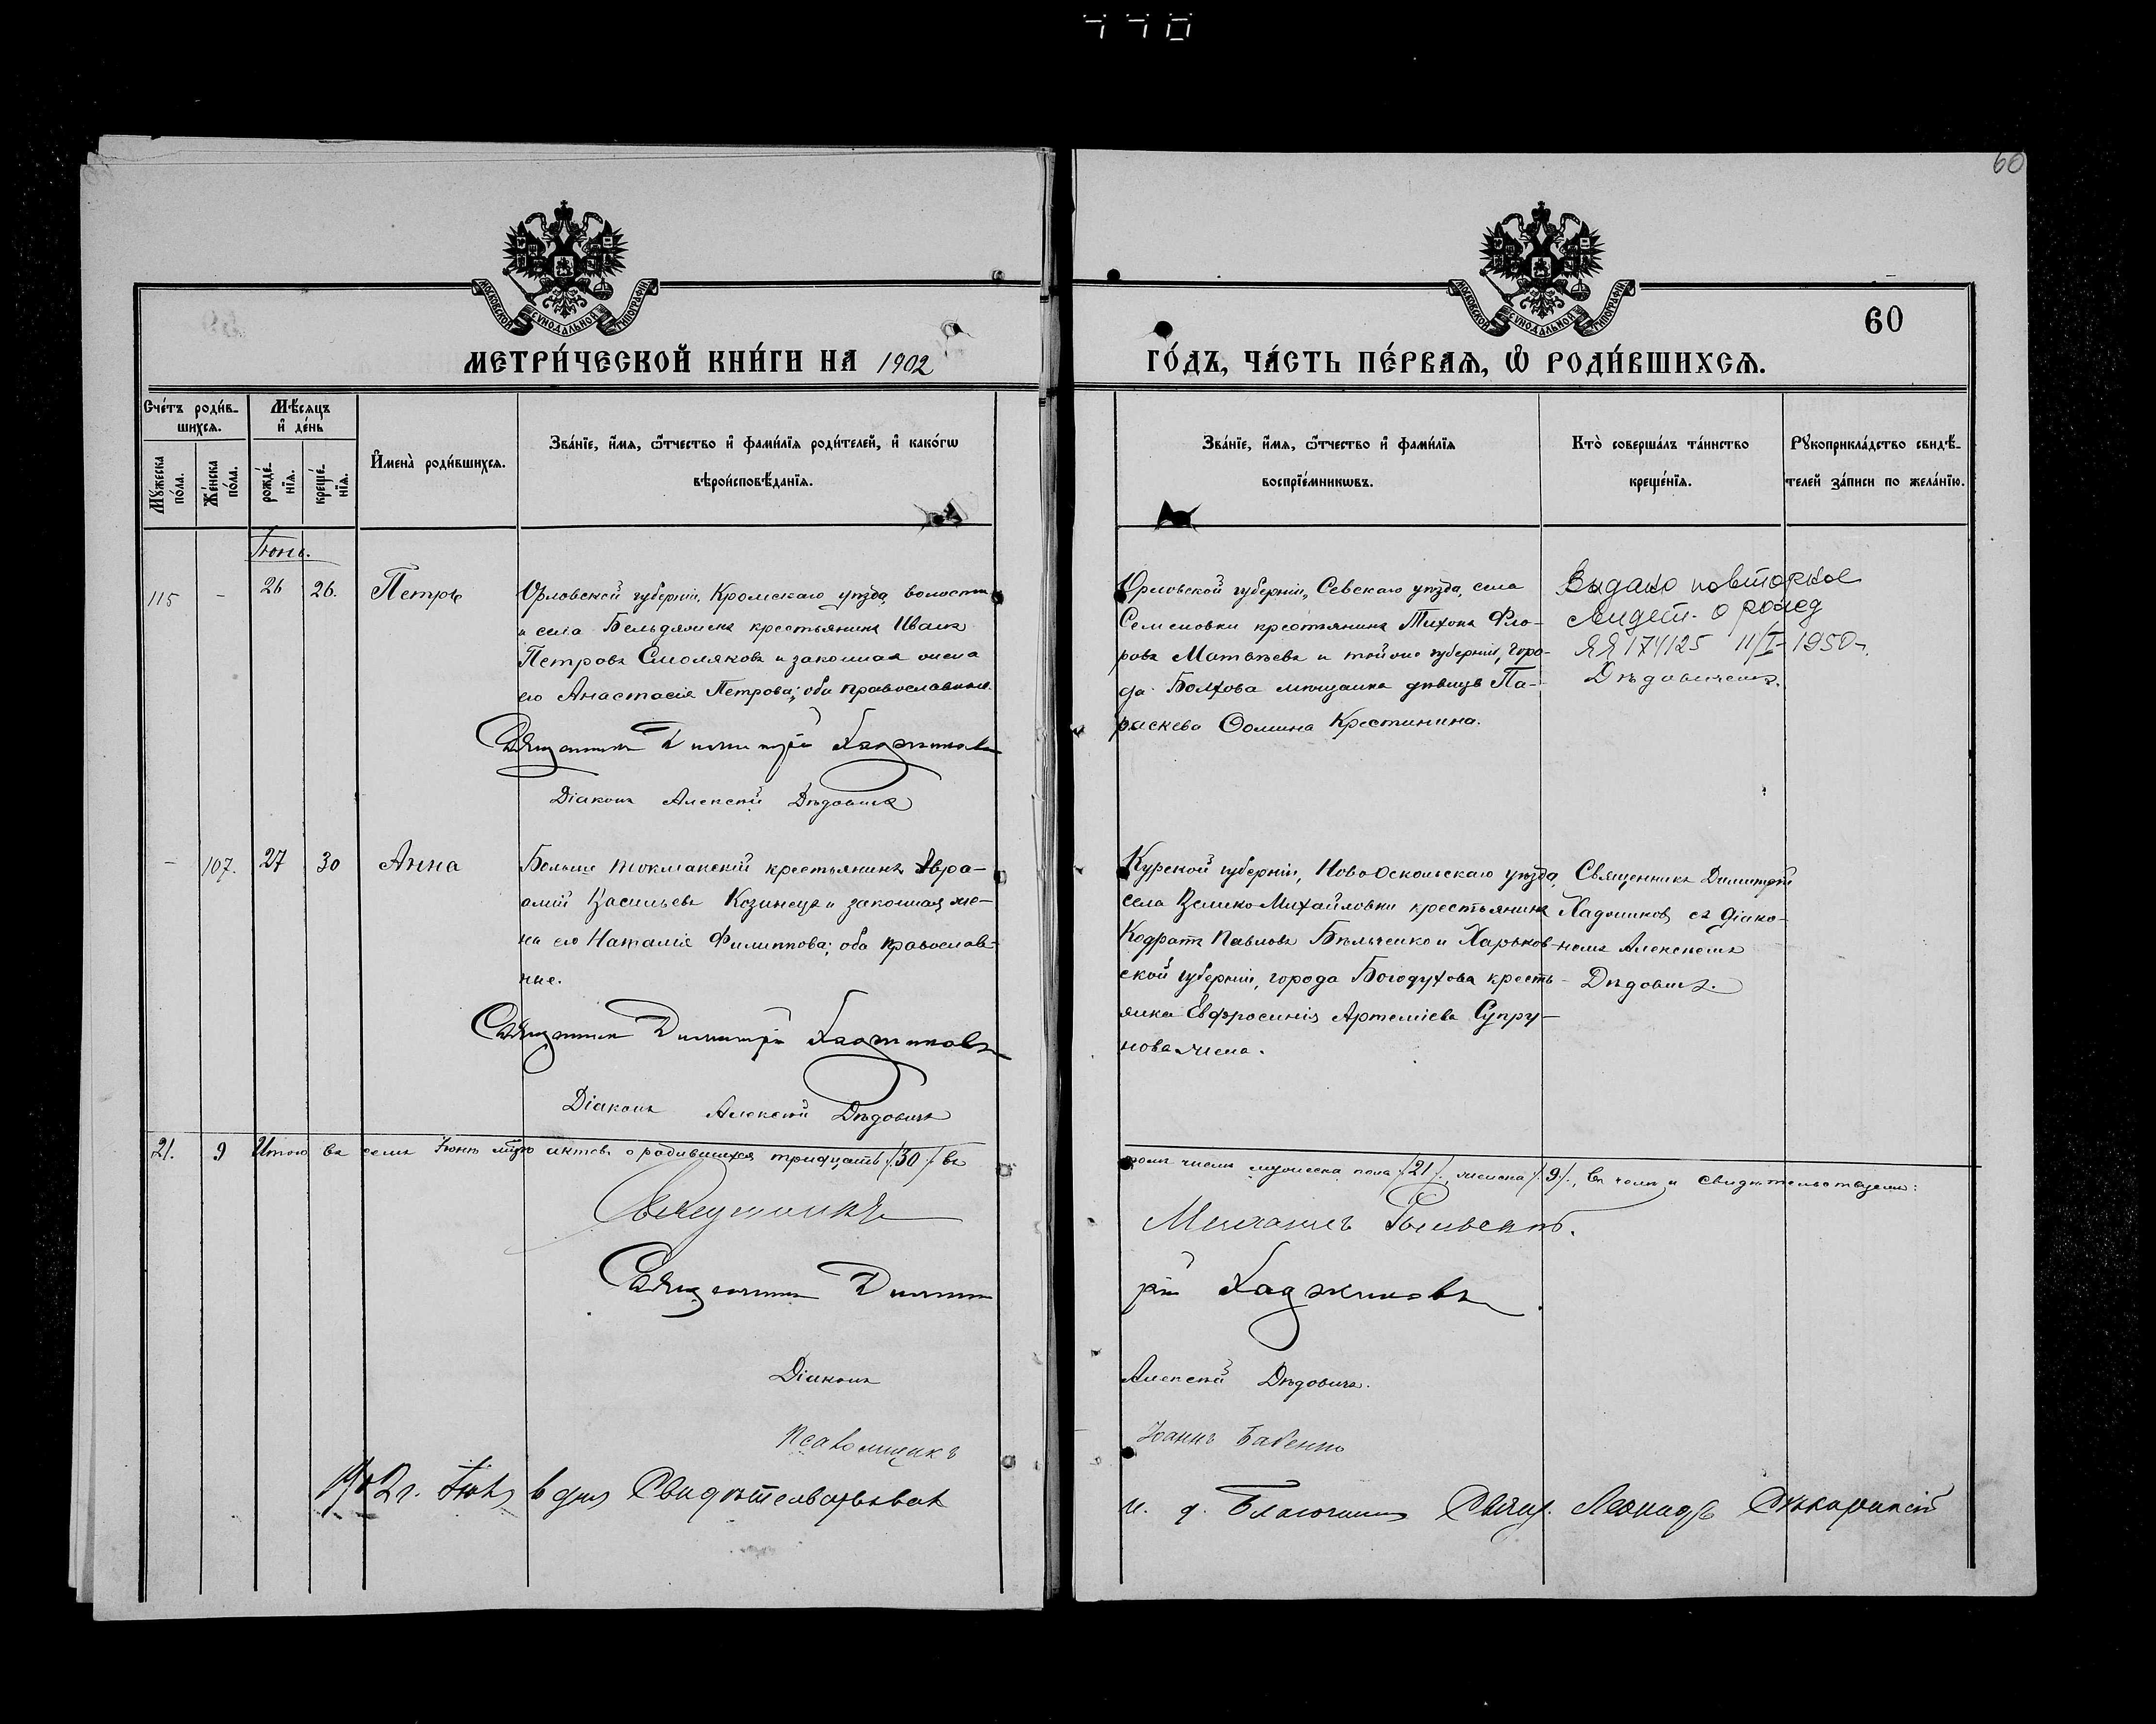 770
60
МОСКОВСКОЙ СУНОДАЛЬНОЙ ТИПОГРАФІИ
МОСКОВСКОЙ СУНОДАЛЬНОЙ ТИПОГРАФІИ
60
МЕТРИ́ЧЕСКОЙ КНИ́ГИ НА 1902
ГО́ДЪ, ЧА́СТЬ ПЕ́РВАѦ, Ѡ҆ РОДИ́ВШИХСѦ.
Сче́тъ роди́в-
шихсѧ.
Мѣ́сѧцъ
и҆ де́нь
Мꙋ́жеска
по́ла.
Же́нска
по́ла.
рожде́-
нїѧ.
креще́-
нїѧ.
И҆мена̀ роди́вшихсѧ.
Зва́нїе, и҆́мѧ, ѻ҆́тчество и҆ фами́лїѧ роди́телей, и҆ како́гѡ
вѣроисповѣ́данїѧ.
Зва́нїе, и҆́мѧ, ѻ҆́тчество и҆ фами́лїѧ
воспрїе́мникѡвъ.
Кто̀ соверша́лъ та́инство
креще́нїѧ.
Рꙋкоприкла́дство свидѣ́-
телей за́писи по жела́нїю.
Іюнь.
115 - 26 26. Петръ
Орловской губерніи, Кромскаго уѣзда, волости
и села Бельдяжска крестьянинъ Иванъ
Петровъ Смоляковъ и законная жена
его Анастасія Петрова; оба православные.
Священникъ Димитрій Хаджиновъ
Діаконъ Алексѣй Дѣдовичъ
Орловской губерніи, Севскаго уѣзда, села
Семеновки крестьянинъ Тихонъ Фло-
ровъ Матвѣевъ и той же губерніи, горо-
да Болхова мѣщанка дѣвица Па-
раскева Ѳомина Крестинина.
Выдано повторное
свидет. о рожд
ЯЯ 174125 11/I-1950 г.
Дѣдовичемъ.
- 107. 27 30 Анна
Больше Токмакскій крестьянинъ Авра-
амій Васильевъ Козинецъ и законная же-
на его Наталія Филиппова; оба православ-
ные.
Священникъ Димитрій Хаджиновъ
Діаконъ Алексѣй Дѣдовичъ
Курской губерніи, Ново-Оскольскаго уѣзда,
села Велико-Михайловки крестьянинъ
Кодратъ Павловъ Бѣльченко и Харьков-
ской губерніи, города Богодухова кресть-
янка Евфросинія Артеміева Супру-
нова жена.
Священникъ Димитрій
Хаджиновъ съ діако-
номъ Алексѣемъ
Дѣдовичъ.
21. 9 Итого въ семъ Іюнѣ мѣсяцѣ актовъ о родившихся тридцать /30/ въ
томъ числѣ мужеска пола /21/, женска /9/, въ чемъ и свидѣтельствуемъ:
Священникъ Михаилъ
Священникъ Димит
рій Хаджиновъ.
Діаконъ Алексѣй Дѣдовичъ.
Псаломщикъ Іоаннъ Бабенко
1902 г. дня Свидѣтельствовалъ
и. д. Благочин. Свящ. Леонидъ